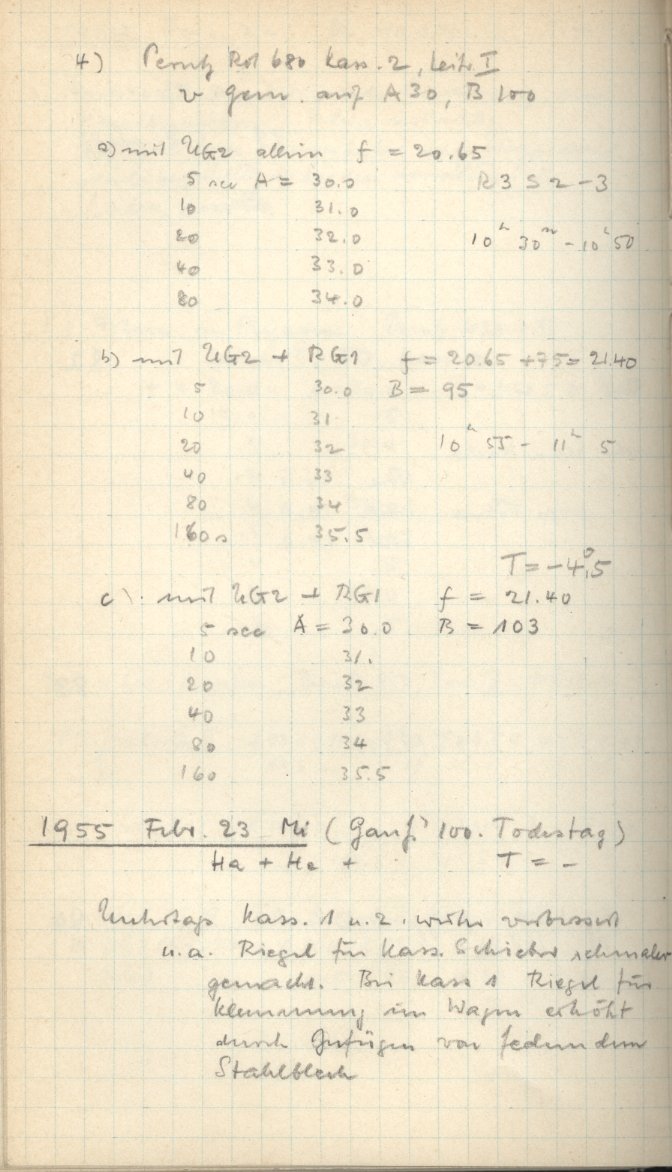 4) Perutz Rot 680 Kass. 2, Leitr. I
v gem. auf A 30, B 100
a) mit UG2 allein f = 20.65
5 sec A = 30.0 R3 S2-3
10 31.0
20 32.0 10h 30m - 10h 50
40 33.0
80 34.0
b) mit UG2 + RG1 f = 20.65 + 75 = 21.40
5 30.0 B = 95
10 31
20 32 10h 55 - 11h 5
40 33
80 34
160 s 35.5
T = -4°,5
c) mit UG2 + RG1 f = 21.40
5 sec A = 30.0 B = 103
10 31.
20 32
40 33
80 34
160 35.5
1955 Febr. 23 Mi (Gauß' 100. Todestag)
Ha + He + T = -
Kass. 1 u. 2. weiter verbessert
u.a. Riegel für Kass. Schieber schmaler
gemacht. Bei Kass 1 Riegel für
Klemmung im Wagen erhöht
durch Zufügen von federndem
Stahlblech